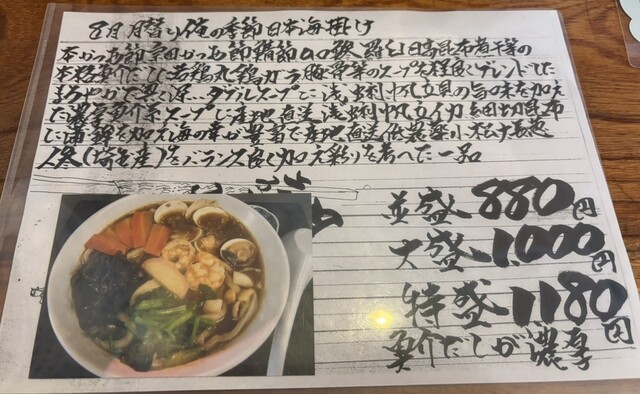 8月月替り俺の季節日本海掛け
本かつお節宗田かつお節鯖節 羅臼日高昆布煮干等の
本格 だしひ若鶏丸鶏ガラ豚骨等のスープを程良くブレンドした
まろやかで ダブルスープに浅蜊 帆立貝の旨味を加え
た濃厚魚介系スープに産地直送浅蜊帆立イカ 細切昆布
に 加え海の幸が豊富で産地直送低農薬小松菜長葱
人参(埼玉産)をバランス良く加え彩りを考へた一品
並盛880円
大盛1.000円
特盛1180円
魚介だしが濃厚